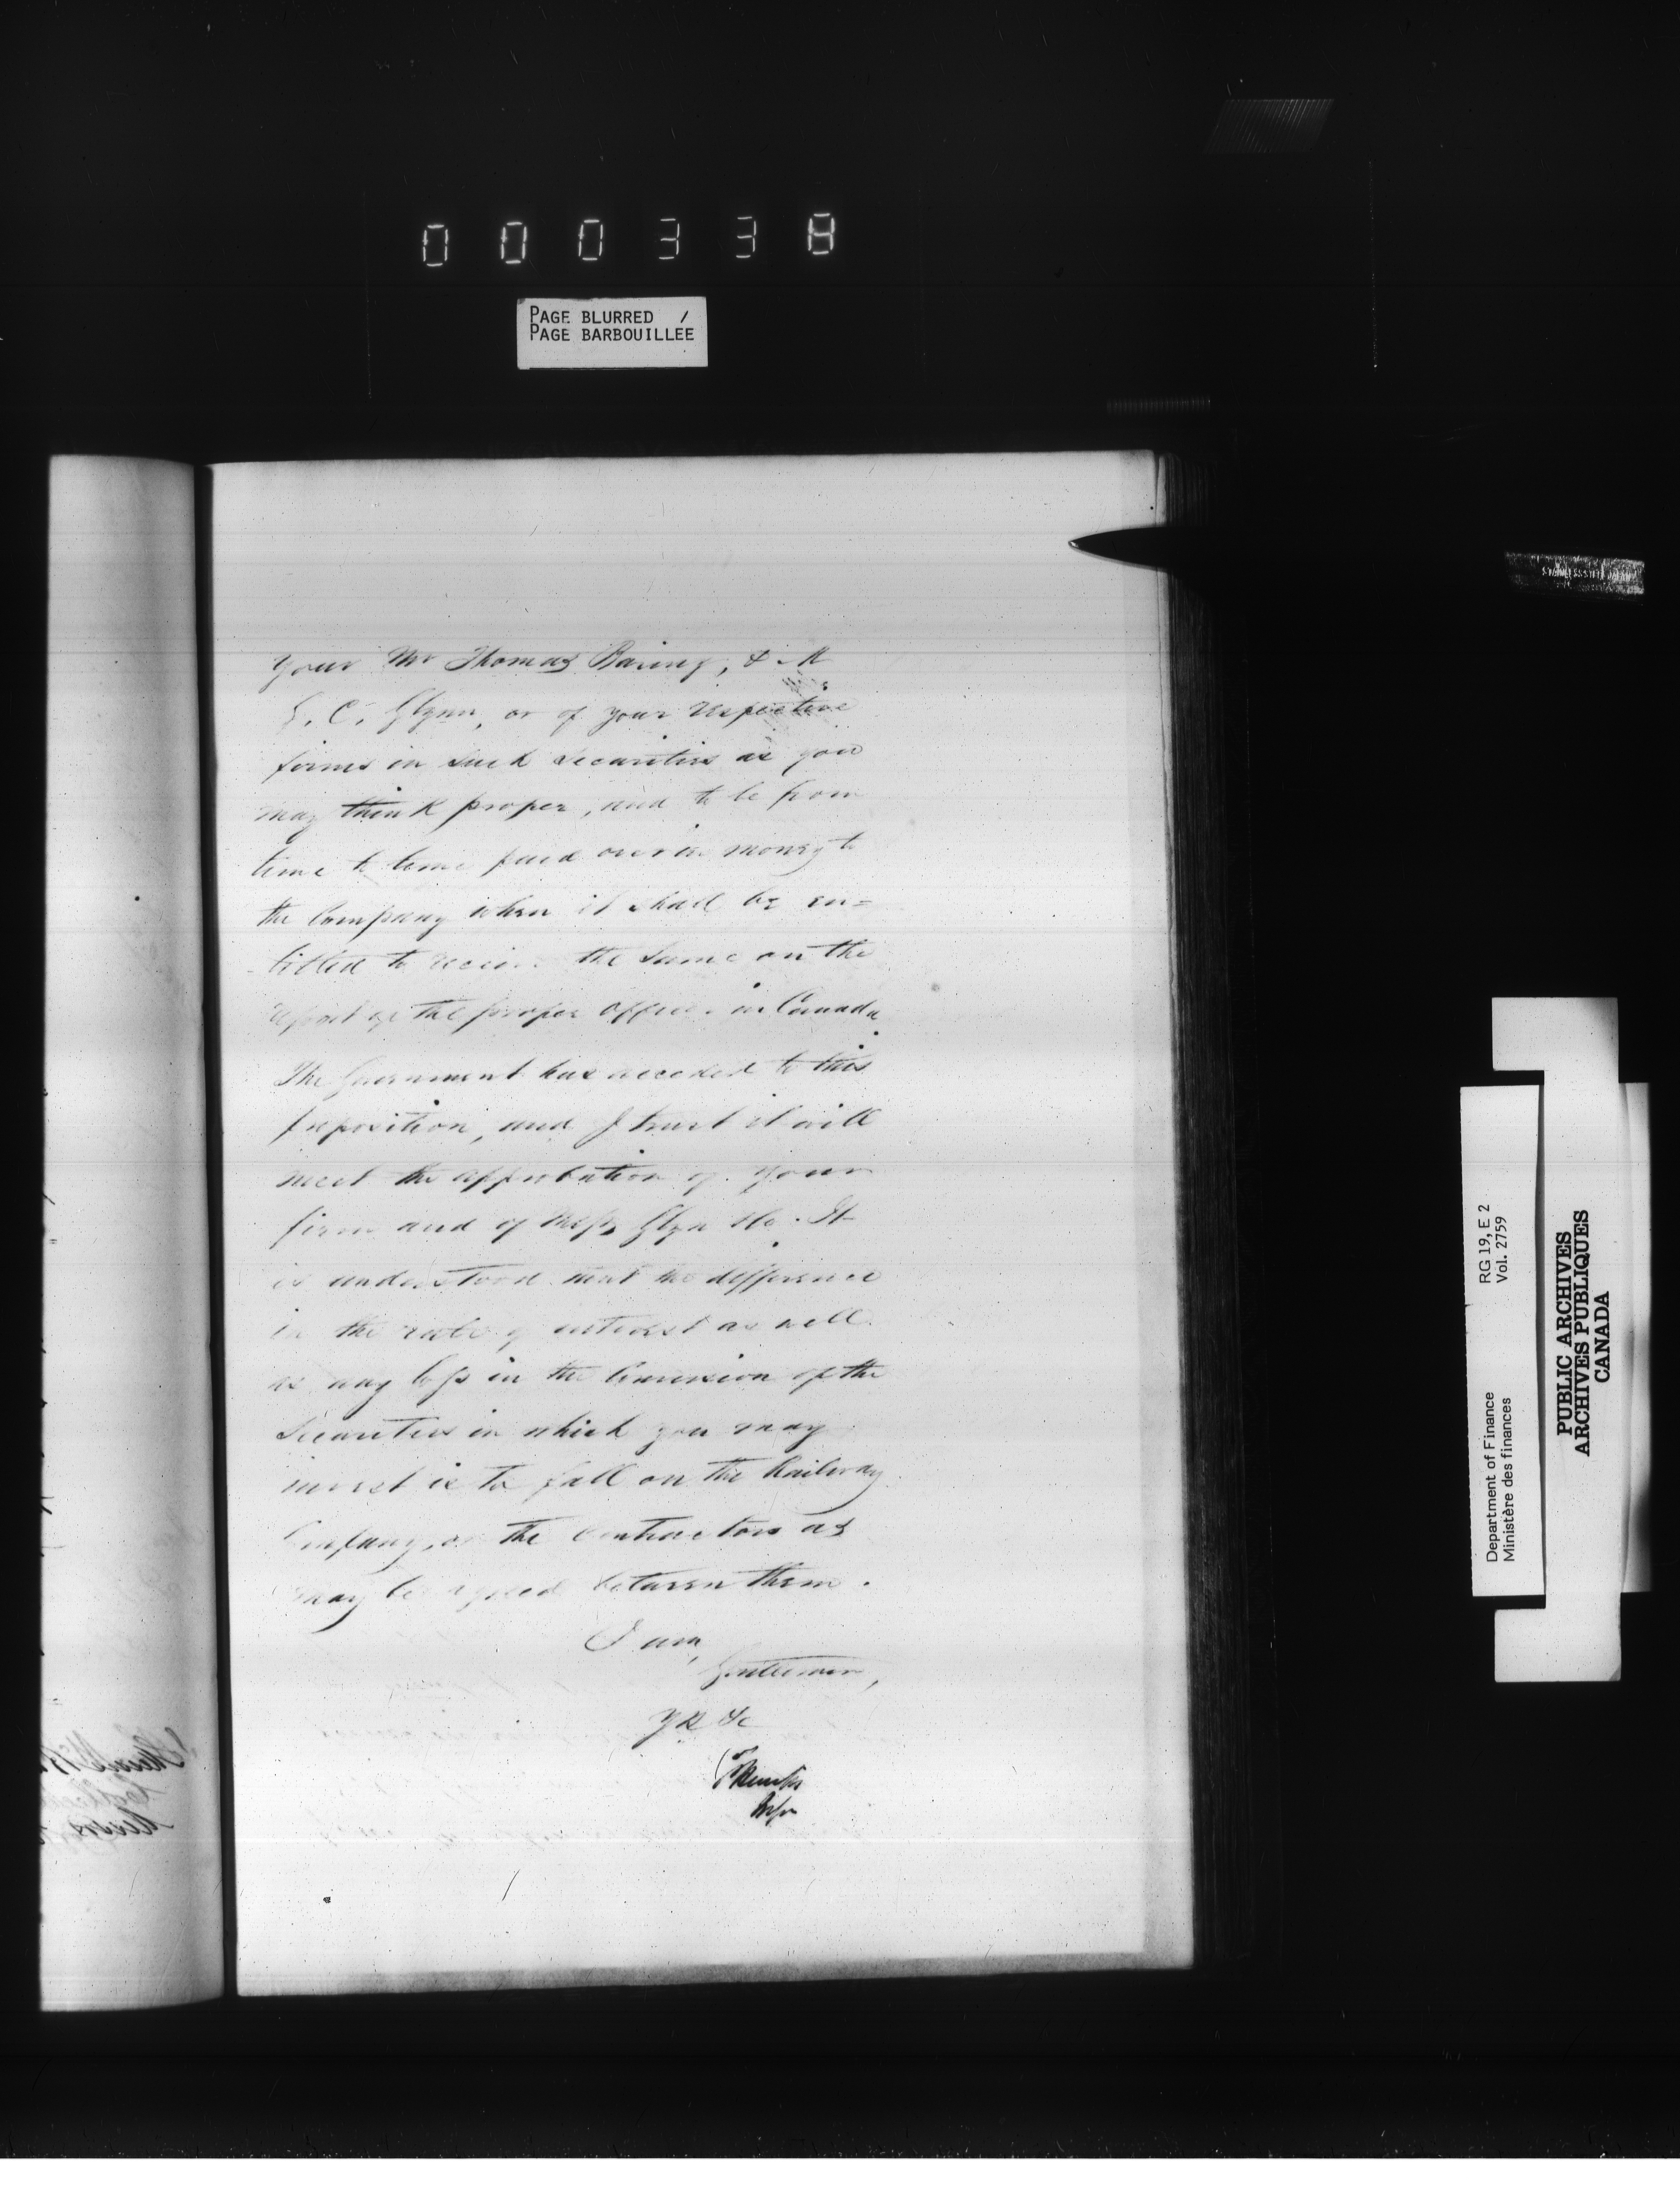 000338
PAGE BLURRED /
PAGE BARBOUILLEE
your Mr Thomas Baring, & Mr
G. C. Glynn, or of your respective
firms in such securities as you
may think proper, and to be from
time to time paid over in money to
the Company when it shall be en=
titled to receive the same on the
report of the proper officer in Canada
The Government has acceded to this
proposition, and I trust it will
meet the approbation of your
firm and of Messrs Glyn &Co. It
is understood that the difference
in the rate of interest as well
as any loss in the Conversion of the
Securities in which you may
invest is to fall on the Railway
Company, or the Contractors as
may be agreed between them.
I am,
Gentlemen,
Yr &c
RG 19, E 2
Vol. 2759
Department of Finance
Ministère des finances
PUBLIC ARCHIVES
ARCHIVES PUBLIQUES
CANADA